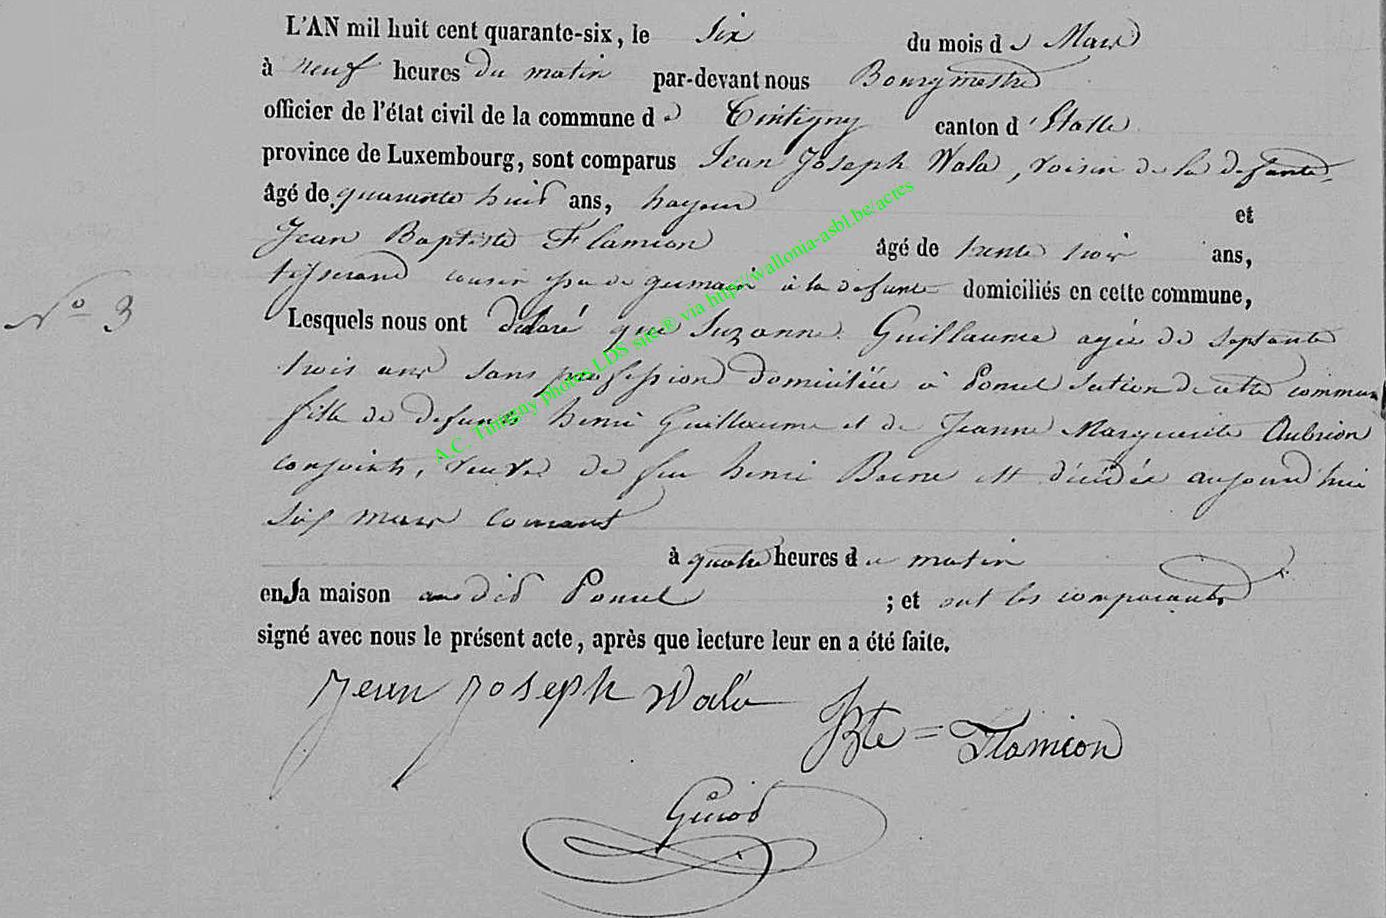 L'AN mil huit cent quarante-six, le six du mois de Mars
à neuf heures du matin par-devant nous Bourgmestre
officier de l'état civil de la commune de Tintigny canton d'Etalle
province de Luxembourg, sont comparus Jean Joseph Wala, voisin de la defunte,
âgé de quarante huit ans, et
Jean Baptiste Flamion âgé de trente trois ans,
tisserand cousin issu de germain à la defunte domiciliés en cette commune,
N° 3
Lesquels nous ont déclaré que Suzanne Guillaume agée de septante
trois ans sans profession domiciliée à Poncel section de cette commune
fille de defunts henri Guillaume et de Jeanne Marguerite Aubrion
conjoints, veuve de feu henri est décédée aujourd'hui
six mars courant
à quatre heures du matin
en la maison audit Poncel ; et ont les comparants
signé avec nous le présent acte, après que lecture leur en a été faite.
Jean Joseph Wala
JBte = Flamion
A.C. Tintigny photos LDS site® via http://wallonia-asbl.be/actes